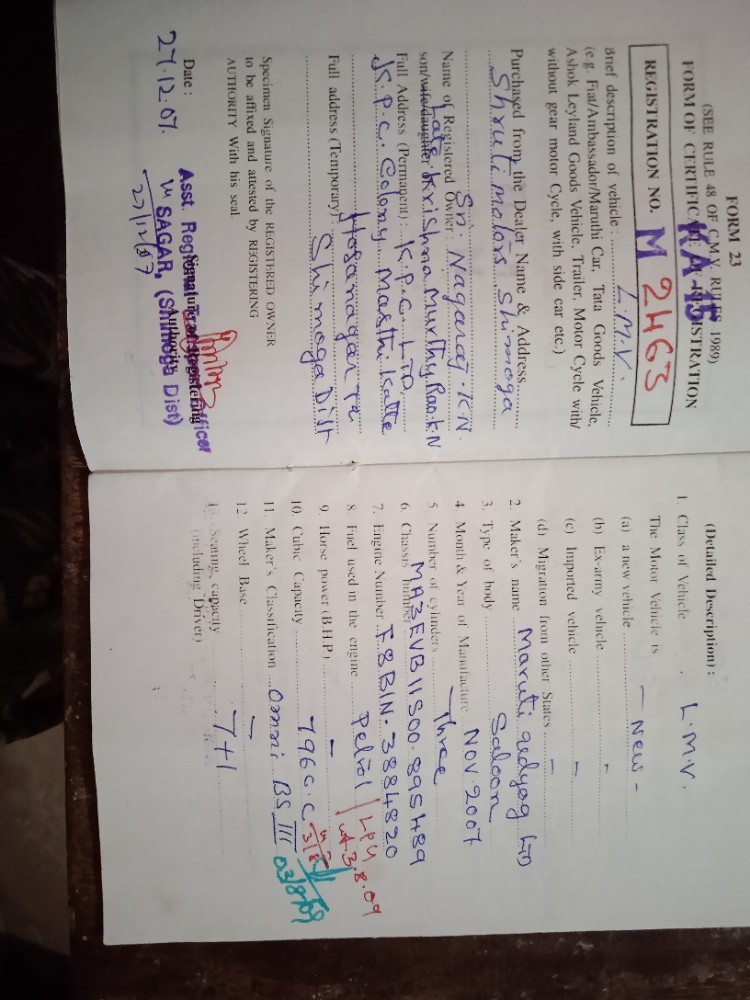 FORM 23
(SEE RULE 48 OF C.M.V. RULES 1989)
FORM OF CERTIFICATE OF REGISTRATION
KA 15
REGISTRATION NO. M 2463
Brief description of vehicle : L.M.V.
(e.g. Fiat/Ambassador/Maruthi Car, Tata Goods Vehicle,
Ashok Leyland Goods Vehicle, Trailer, Motor Cycle with/
without gear motor Cycle, with side car etc.)
Purchased from the Dealer Name & Address
Shruti motors Shimoga
Name of Registered Owner : Sri. Nagaraj. K.N.
son/wife/daughter of Late Krishna Murthy Rao. K.N
Full Address (Permanent) : K.P.C. LTD
V.S.P.C. Colony Masthi Katte
Hosanagar Tq
Full address (Temporary) Shimoga Dist
Specimen Signature of the REGISTERED OWNER
to be affixed and attested by REGISTERING
AUTHORITY With his seal.
Date :
27.12.07.
Signature of Registering
Authority
Asst. Regional Officer
SAGAR, (Shimoga Dist)
27/12/07
(Detailed Description) :
1. Class of Vehicle L.M.V.
The Motor Vehicle is
(a) a new vehicle - New -
(b) Ex-army vehicle -
(c) Imported vehicle -
(d) Migration from other States -
2. Maker's name Maruti udyog LTD
3. Type of body Saloon
4. Month & Year of Manufacture NOV. 2007
5 Number of cylinders Three
6. Chassis Number MA3EVB11S00.895489
7. Engine Number F8BIN. 3884820
8. Fuel used in the engine Petrol / LPG
3.8.09
9. Horse power (B.H.P) -
10. Cubic Capacity 796 C.C
03/8/09
11. Maker's Classification Omni BS III
12. Wheel Base -
13. Seating, capacity 7+1
(including Driver)